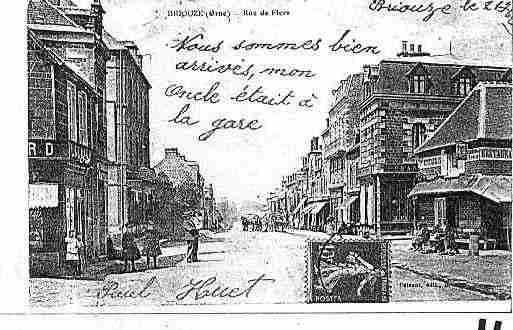 BRIOUZE (Orne) — Rue de Flers
Briouze le
Nous sommes bien
arrivés, mon
Oncle était à
la gare
RD
RESTAURANT
Paul Huet
POSTES